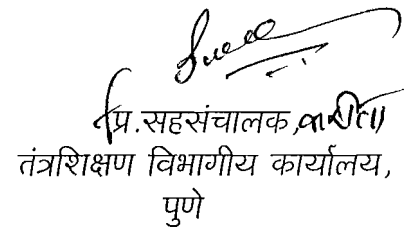 प्र.सहसंचालक, करीता
तंत्रशिक्षण विभागीय कार्यालय,
पुणे